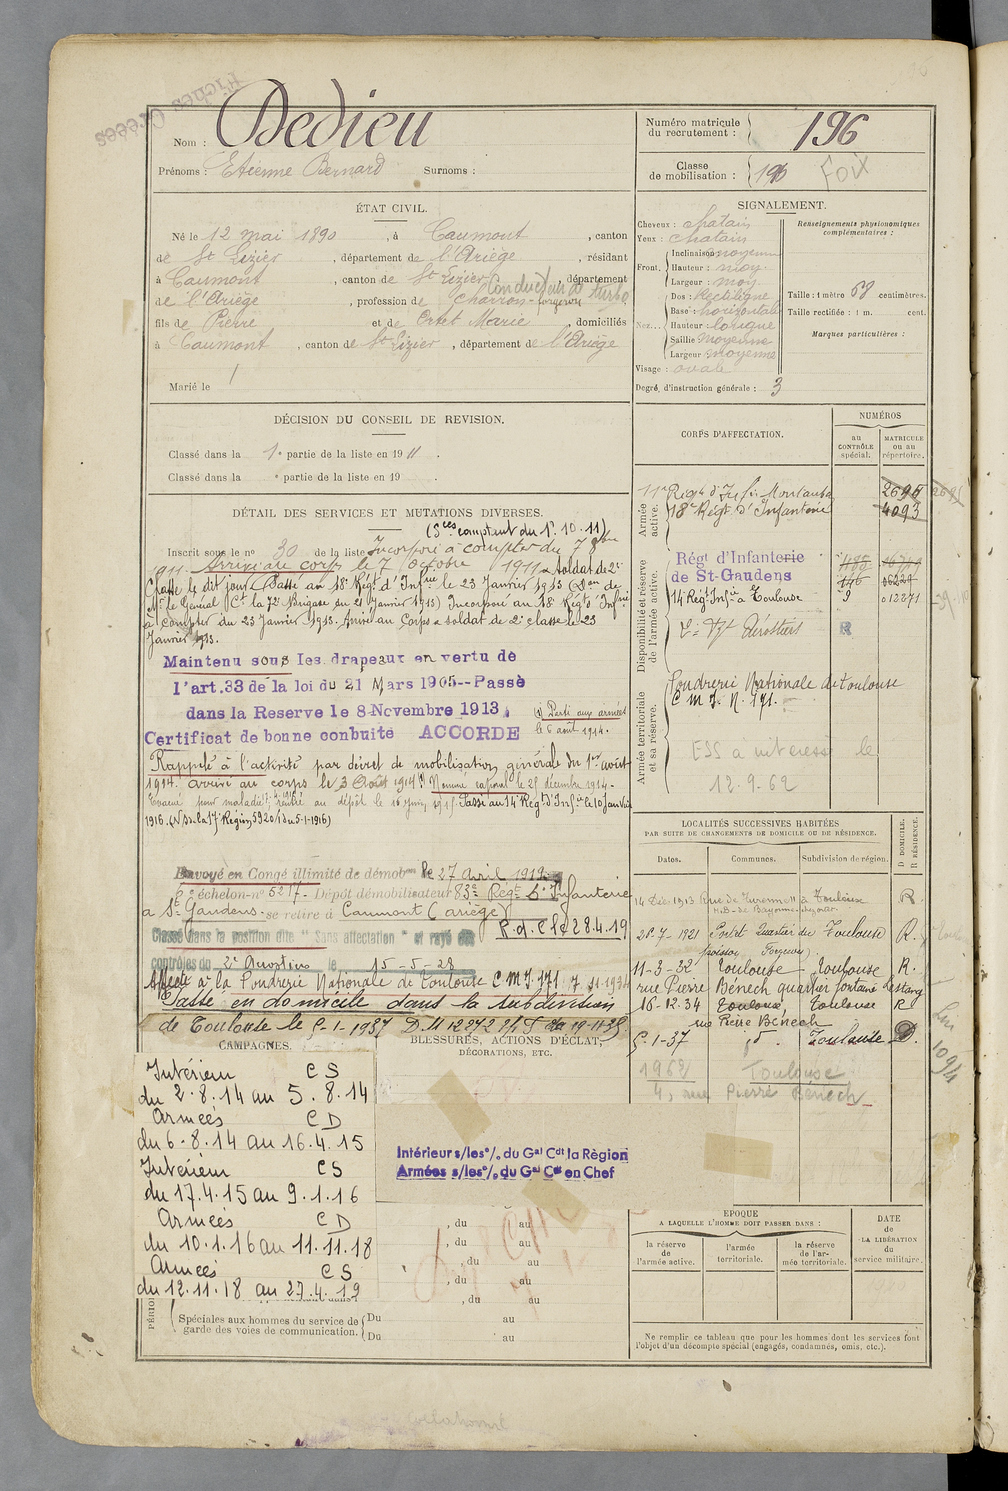 Fiches Créées
Nom : Dedieu
Prénoms : Etienne Bernard Surnoms :
Numéro matricule du recrutement : 196
Classe de mobilisation : 1910 Foix
ÉTAT CIVIL.
Né le 12 mai 1890, à Caumont, canton
de St Lizier, département de l'Ariège, résidant
à Caumont, canton de St Lizier, département
Conducteur de turbo
de l'Ariège, profession de charron-forgeron
fils de Pierre et de Ortet Marie domiciliés
à Caumont, canton de St Lizier, département de l'Ariège
Marié le /
SIGNALEMENT.
Cheveux : chatain
Yeux : chatain
Front. Inclinaison moyenne
Hauteur : moy.
Largeur : moy.
Nez... Dos : Rectiligne
Base : horizontale
Hauteur longue
Saillie moyenne
Largeur moyenne
Visage : ovale
Degré d'instruction générale : 3
Renseignements physionomiques complémentaires :
Taille : 1 mètre 68 centimètres.
Taille rectifiée : 1 m. cent.
Marques particulières :
DÉCISION DU CONSEIL DE REVISION.
Classé dans la 1e partie de la liste en 1911.
Classé dans la e partie de la liste en 19 .
DÉTAIL DES SERVICES ET MUTATIONS DIVERSES.
(Sces comptant du 1er.10.11)
Inscrit sous le no 30 de la liste Incorporé à compter du 7 8bre
1911. Arrivé au corps le 7 octobre 1911 Soldat de 2e
Classe le dit jour. Passé au 18e Régt d'Infrie le 23 Janvier 1913 (Don de
Mr le Général Ct la 72e Brigade du 21 Janvier 1913) Incorporé au 18e Régt d'Infrie
à compter du 23 Janvier 1913. Arrivé au Corps & soldat de 2e classe le 23
Janvier 1913.
Maintenu sous les drapeaux en vertu de
l'art.33 de la loi du 21 Mars 1905--Passé
dans la Reserve le 8 Novembre 1913.
Certificat de bonne conbuite ACCORDE
(1) Parti aux armées
le 6 août 1914.
Rappelé à l'activité par décret de mobilisation générale du 1er août
1914. Arrivé au corps le 3 Août 1914 (1) Nommé caporal le 25 décembre 1914.
Evacué pour maladie; rentré au dépôt le Passé au 14e Régt d'Infrie le 10 Janvier
1916. (N/S de la 17e Région 5920/1 du 5-1-1916)
Envoyé en Congé illimité de démobon le 27 Avril 1919
échelon-no 5217 - Dépôt démobilisateur 83e Régt d'Infanterie
à St Gaudens. se retire à Caumont (Ariège)
R.d.C le 28.4.19
Classé dans la position dite "Sans affectation" et rayé des
contrôles du le 15-5-28
Affecté à la Fondrerie Nationale de Toulouse C M I. 171 7.11.1934
Passé en domicile dans la subdivision
de Toulouse le 5-1-1937
CORPS D'AFFECTATION.
NUMÉROS
au CONTRÔLE spécial.
MATRICULE ou au répertoire.
Armée active.
11e Régt d'Infie Montauban 2695
18e Régt d'Infanterie 4093
Disponibilité et réserve de l'armée active.
Régt d'Infanterie
de St-Gaudens
14e Régt Infie à Toulouse 9 013271
R
Armée territoriale et sa réserve.
Fondrerie Nationale de Toulouse
C M I. N. 171.
ESS à intéressé le
12.9.62
LOCALITÉS SUCCESSIVES HABITÉES
PAR SUITE DE CHANGEMENTS DE DOMICILE OU DE RÉSIDENCE.
Dates. Communes. Subdivision de région. D DOMICILE. R RÉSIDENCE.
14 Déc 1913 Rue de Turenne 11 à Toulouse R.
21-7-1921 Portet Quartier du Toulouse R.
11-3-32 Toulouse Toulouse R.
rue Pierre Bénech quartier fontaine Lestang
16-12-34 Toulouse Toulouse R
rue Pierre Bénech
5-1-37 do. Toulouse D.
1962 Toulouse
4, rue Pierre Bénech
CAMPAGNES.
Intérieur CS
du 2.8.14 au 5.8.14
Armées CD
du 6.8.14 au 16.4.15
Intérieur CS
du 17.4.15 au 9.1.16
Armées CD
du 10.1.16 au 11.11.18
Armées CS
du 12.11.18 au 27.4.19
BLESSURES, ACTIONS D'ÉCLAT, DÉCORATIONS, ETC.
Intérieur s/les o/. du Gal Cdt la Règion
Armées s/les o/. du Gal Cdt en Chef
, du au
, du au
, du au
, du au
, du au
Spéciales aux hommes du service de garde des voies de communication.
Du au
Du au
ÉPOQUE
A LAQUELLE L'HOMME DOIT PASSER DANS :
la réserve de l'armée active.
l'armée territoriale.
la réserve de l'armée territoriale.
DATE de LA LIBÉRATION du service militaire.
Ne remplir ce tableau que pour les hommes dont les services font
l'objet d'un décompte spécial (engagés, condamnés, omis, etc.).